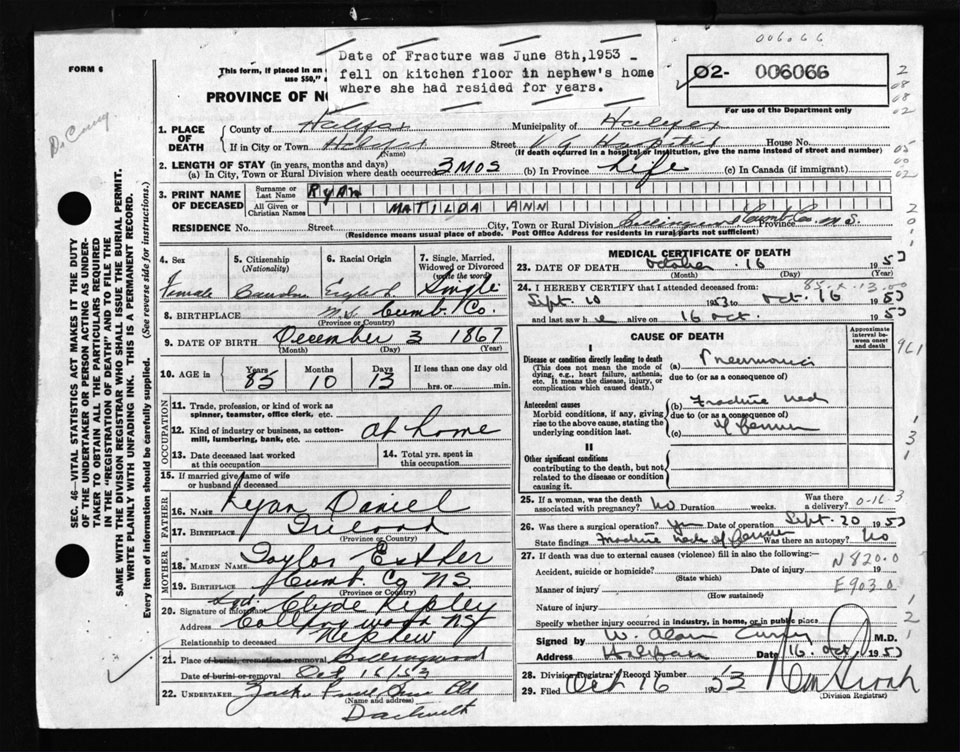 006066
Date of Fracture was June 8th,1953 -
fell on kitchen floor in nephew's home
where she had resided for years.
FORM 6
This form, if placed in an
use $50,"
PROVINCE OF NO
02- 006066
For use of the Department only
1. PLACE OF DEATH
County of Halifax Municipality of Halifax
If in City or Town Halifax Street V G Hospital House No.
(Name) (If death occurred in a hospital or institution, give the name instead of street and number)
2. LENGTH OF STAY (in years, months and days)
(a) In City, Town or Rural Division where death occurred 3 MOS (b) In Province Life (c) In Canada (if immigrant)
3. PRINT NAME OF DECEASED
Surname or Last Name RYAN
All Given or Christian Names MATILDA ANN
RESIDENCE No. Street City, Town or Rural Division Collingwood Cumb Co. Province N.S.
(Residence means usual place of abode. Post Office Address for residents in rural parts not sufficient)
4. Sex
Female
5. Citizenship
(Nationality)
Canadian
6. Racial Origin
English
7. Single, Married, Widowed or Divorced
(write the word)
Single
8. BIRTHPLACE N.S. Cumb. Co.
(Province or Country)
9. DATE OF BIRTH December 3 1867
(Month) (Day) (Year)
10. AGE in Years 85 Months 10 Days 13 If less than one day old
hrs. or min.
OCCUPATION
11. Trade, profession, or kind of work as spinner, teamster, office clerk, etc.
12. Kind of industry or business, as cotton-mill, lumbering, bank, etc. at home
13. Date deceased last worked at this occupation
14. Total yrs. spent in this occupation
15. If married give name of wife or husband of deceased
FATHER
16. NAME Ryan Daniel
17. BIRTHPLACE Ireland
(Province or Country)
MOTHER
18. MAIDEN NAME Taylor Esther
19. BIRTHPLACE Cumb. Co N.S.
(Province or Country)
20. Signature of informant Clyde Ripley
Address Collingwood N.S
Relationship to deceased Nephew
21. Place of burial, cremation or removal Collingwood
Date of burial or removal Oct 16/53
22. UNDERTAKER
(Name and address)
MEDICAL CERTIFICATE OF DEATH
23. DATE OF DEATH October 16 1953
(Month) (Day) (Year)
24. I HEREBY CERTIFY that I attended deceased from:
Sept. 10 1953 to Oct. 16 1953
and last saw h e alive on 16 Oct. 1953
CAUSE OF DEATH
Approximate interval between onset and death
I
Disease or condition directly leading to death
(This does not mean the mode of dying, e.g., heart failure, asthenia, etc. It means the disease, injury, or complication which caused death.)
(a) Pneumonia
due to (or as a consequence of)
Antecedent causes
Morbid conditions, if any, giving rise to the above cause, stating the underlying condition last.
(b) Fracture neck
due to (or as a consequence of)
of femur
(c)
II
Other significant conditions
contributing to the death, but not related to the disease or condition causing it.
25. If a woman, was the death associated with pregnancy? No Duration weeks. Was there a delivery?
26. Was there surgical operation? yes Date of operation Sept. 20 1953
State findings Fracture neck of femur Was there an autopsy? No
27. If death was due to external causes (violence) fill in also the following:—
Accident, suicide or homicide? Date of injury 19
(State which)
Manner of injury
(How sustained)
Nature of injury
N820.0
E903.0
Specify whether injury occurred in industry, in home, or in public place
Signed by W. Alan Curry M.D.
Address Halifax Date 16 Oct 1953
28. Division Registrar's Record Number
29. Filed Oct 16 1953
(Division Registrar)
SEC. 46—VITAL STATISTICS ACT MAKES IT THE DUTY
OF THE UNDERTAKER OR PERSON ACTING AS UNDER-
TAKER TO OBTAIN ALL THE PARTICULARS REQUIRED
IN THE "REGISTRATION OF DEATH" AND TO FILE THE
SAME WITH THE DIVISION REGISTRAR WHO SHALL ISSUE THE BURIAL PERMIT.
WRITE PLAINLY WITH UNFADING INK. THIS IS A PERMANENT RECORD.
Every item of information should be carefully supplied. (See reverse side for instructions.)